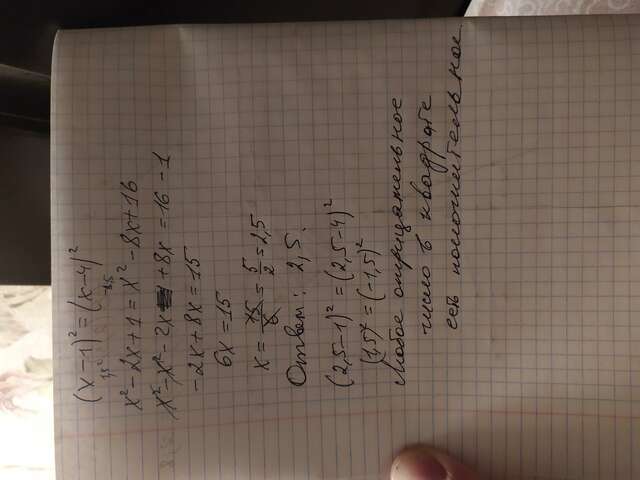 (x-1)² = (x-4)²
1,5 -1,5
x² - 2x + 1 = x² - 8x + 16
x² - x² - 2x + 8x = 16 - 1
-2x + 8x = 15
6x = 15
x = 15/6 = 5/2 = 2,5
Ответ: 2,5.
(2,5-1)² = (2,5-4)²
(1,5)² = (-1,5)²
Любое отрицательное
число в квадрате
есть положительное